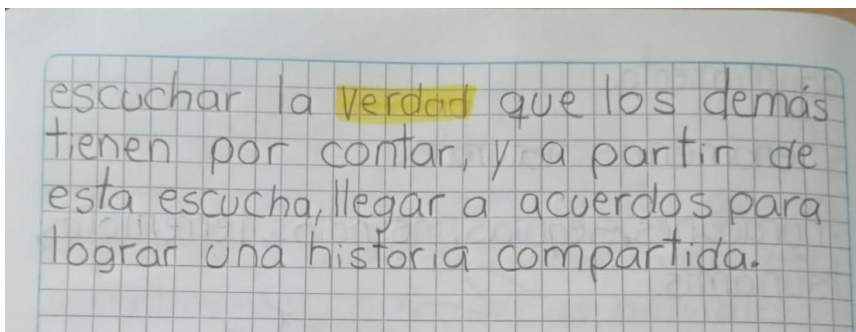 escuchar la verdad que los demás
tienen por contar, y a partir de
esta escucha, llegar a acuerdos para
lograr una historia compartida.